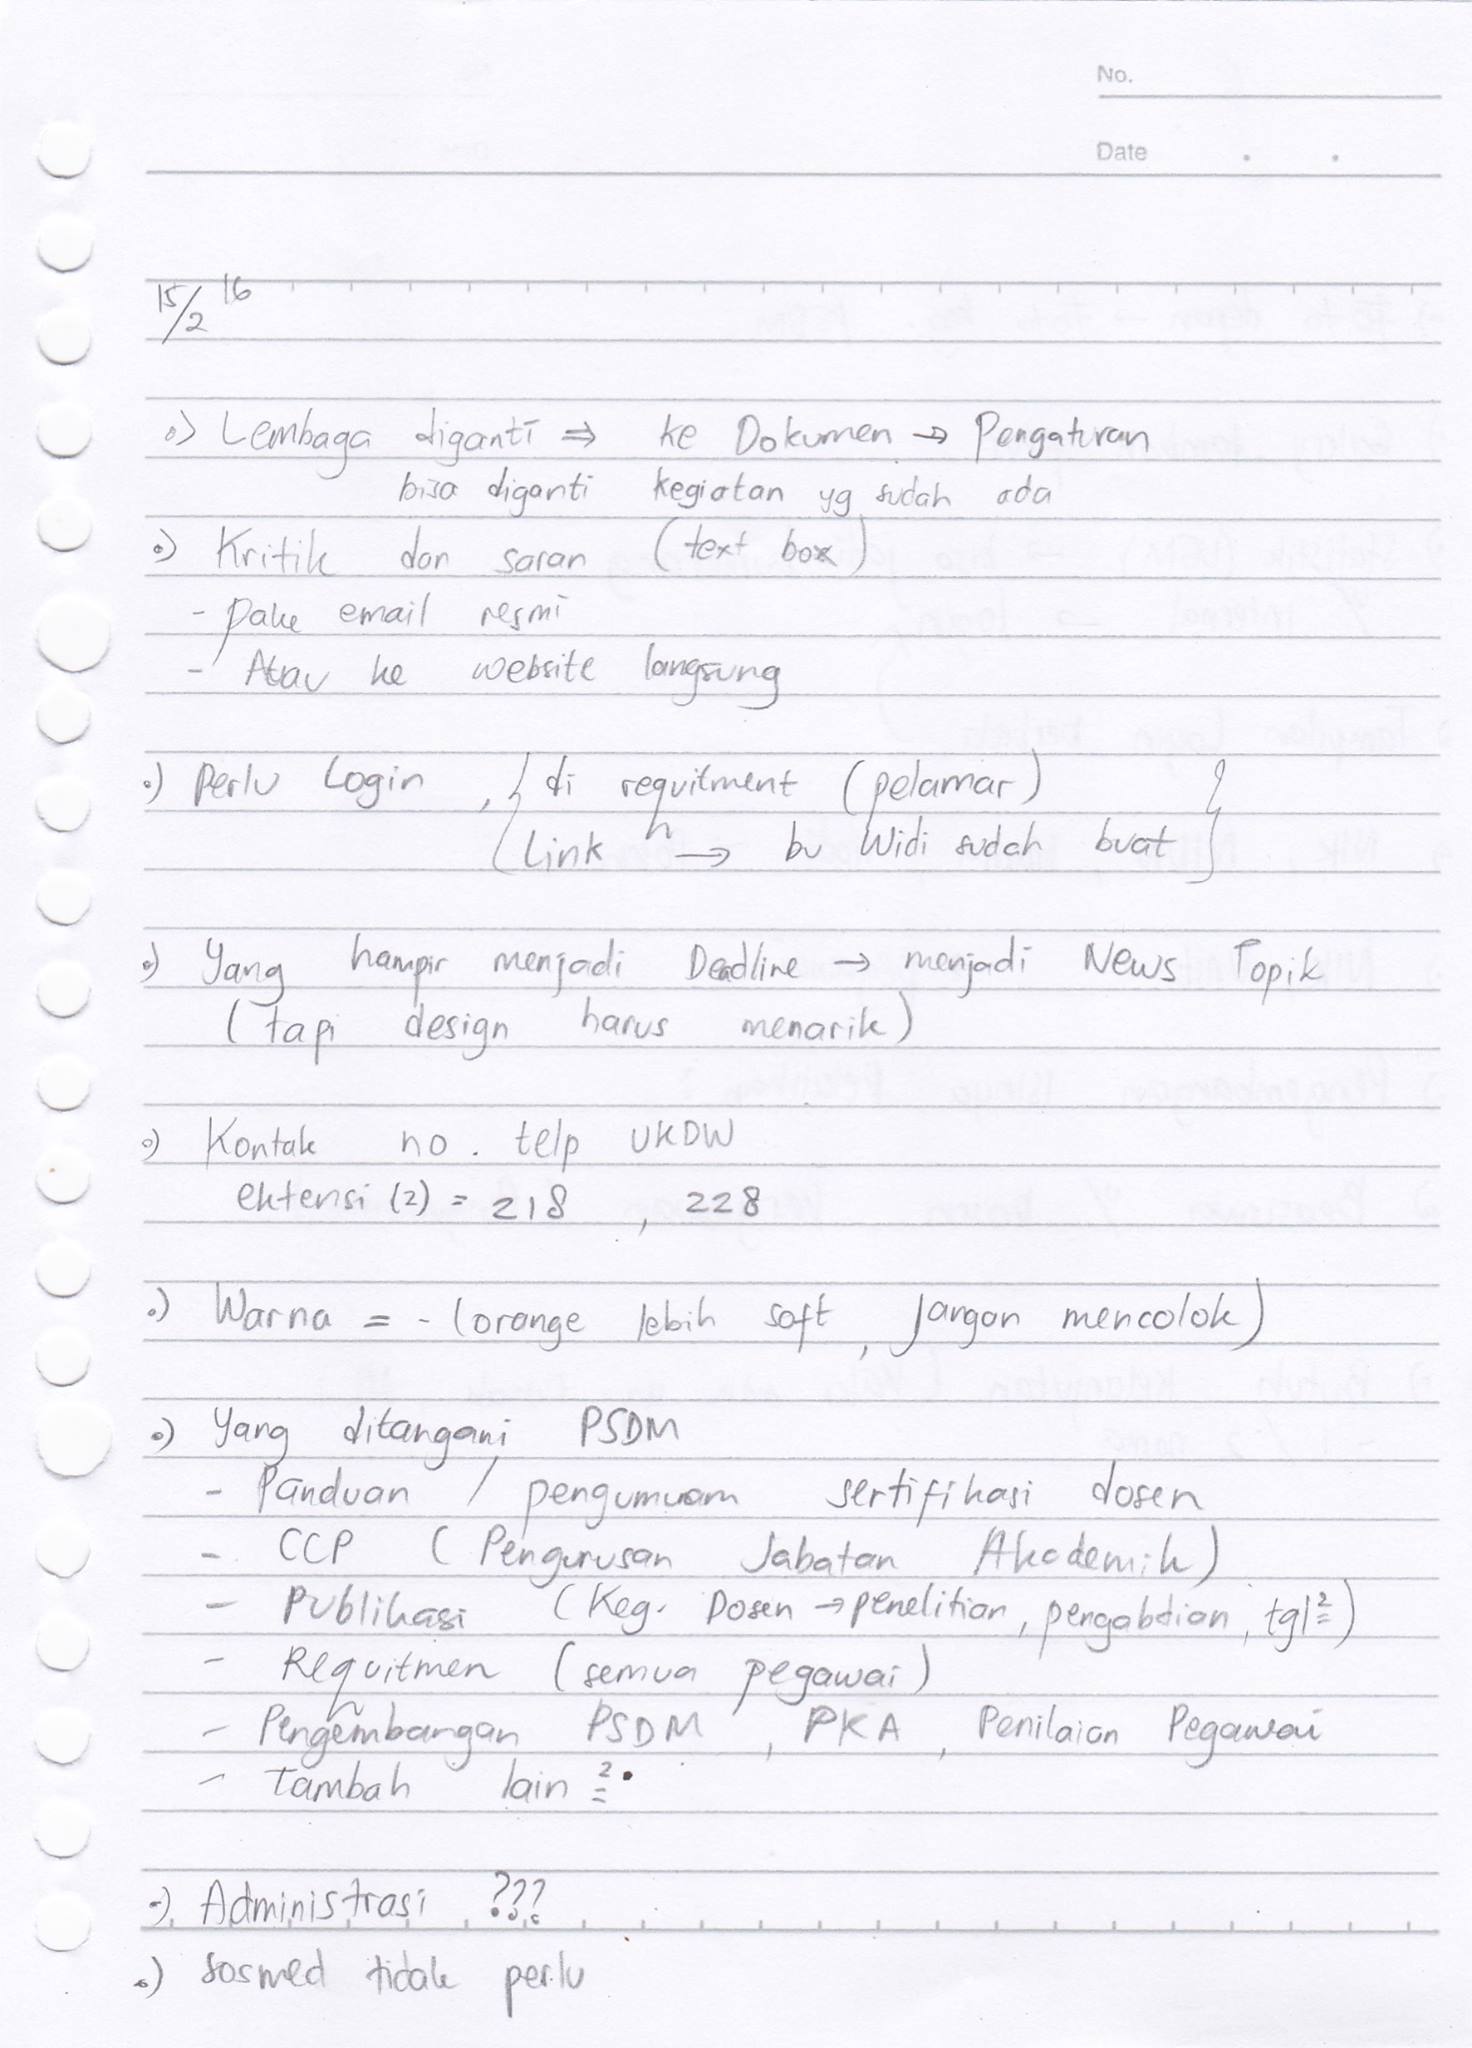 No.
Date . .
15/2 16
•) Lembaga diganti ⇒ ke Dokumen → Pengaturan
bisa diganti kegiatan yg sudah ada
•) Kritik dan saran (text box)
- pake email resmi
- Atau ke website langsung
•) Perlu Login , { di requitment (pelamar) }
{ Link → bu Widi sudah buat }
•) Yang hampir menjadi Deadline → menjadi News Topik
(tapi design harus menarik)
•) Kontak no. telp UKDW
ektensi (2) = 218 , 228
•) Warna = - (orange lebih soft, jangan mencolok)
•) Yang ditangani PSDM
- Panduan / pengumuam sertifikasi dosen
- CCP (Pengurusan Jabatan Akademik)
- Publikasi (Keg. Dosen → penelitian, pengabdian, tgl²)
- Requitmen (semua pegawai)
- Pengembangan PSDM , PKA , Penilaian Pegawai
- Tambah lain²
•) Administrasi ???
•) sosmed tidak perlu